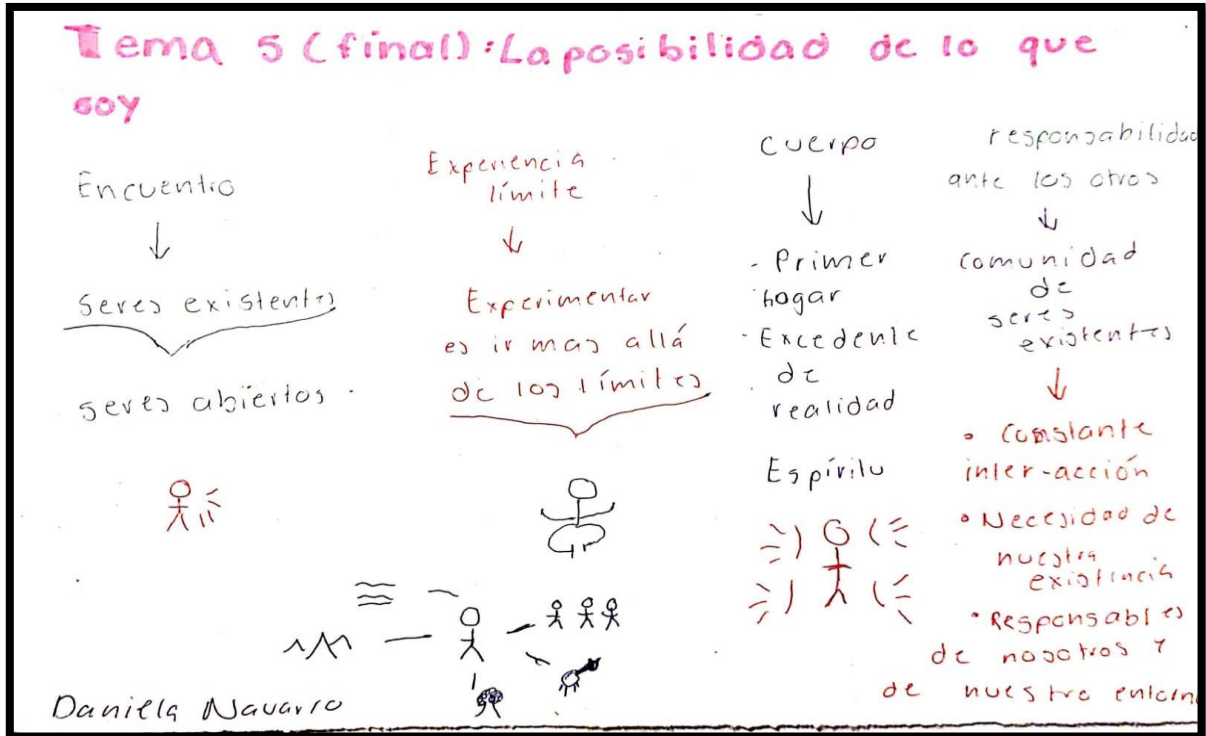 Tema 5 (final): La posibilidad de lo que
soy
Encuentro
Seres existentes
seres abiertos.
Experiencia
límite
Experimentar
es ir mas allá
de los límites
cuerpo
- Primer
hogar
- Excedente
de
realidad
Espíritu
responsabilidad
ante los otros
comunidad
de
seres
existentes
• Constante
inter-acción
• Necesidad de
nuestra
existencia
• Responsables
de nosotros y
de nuestro entorno
Daniela Navarro